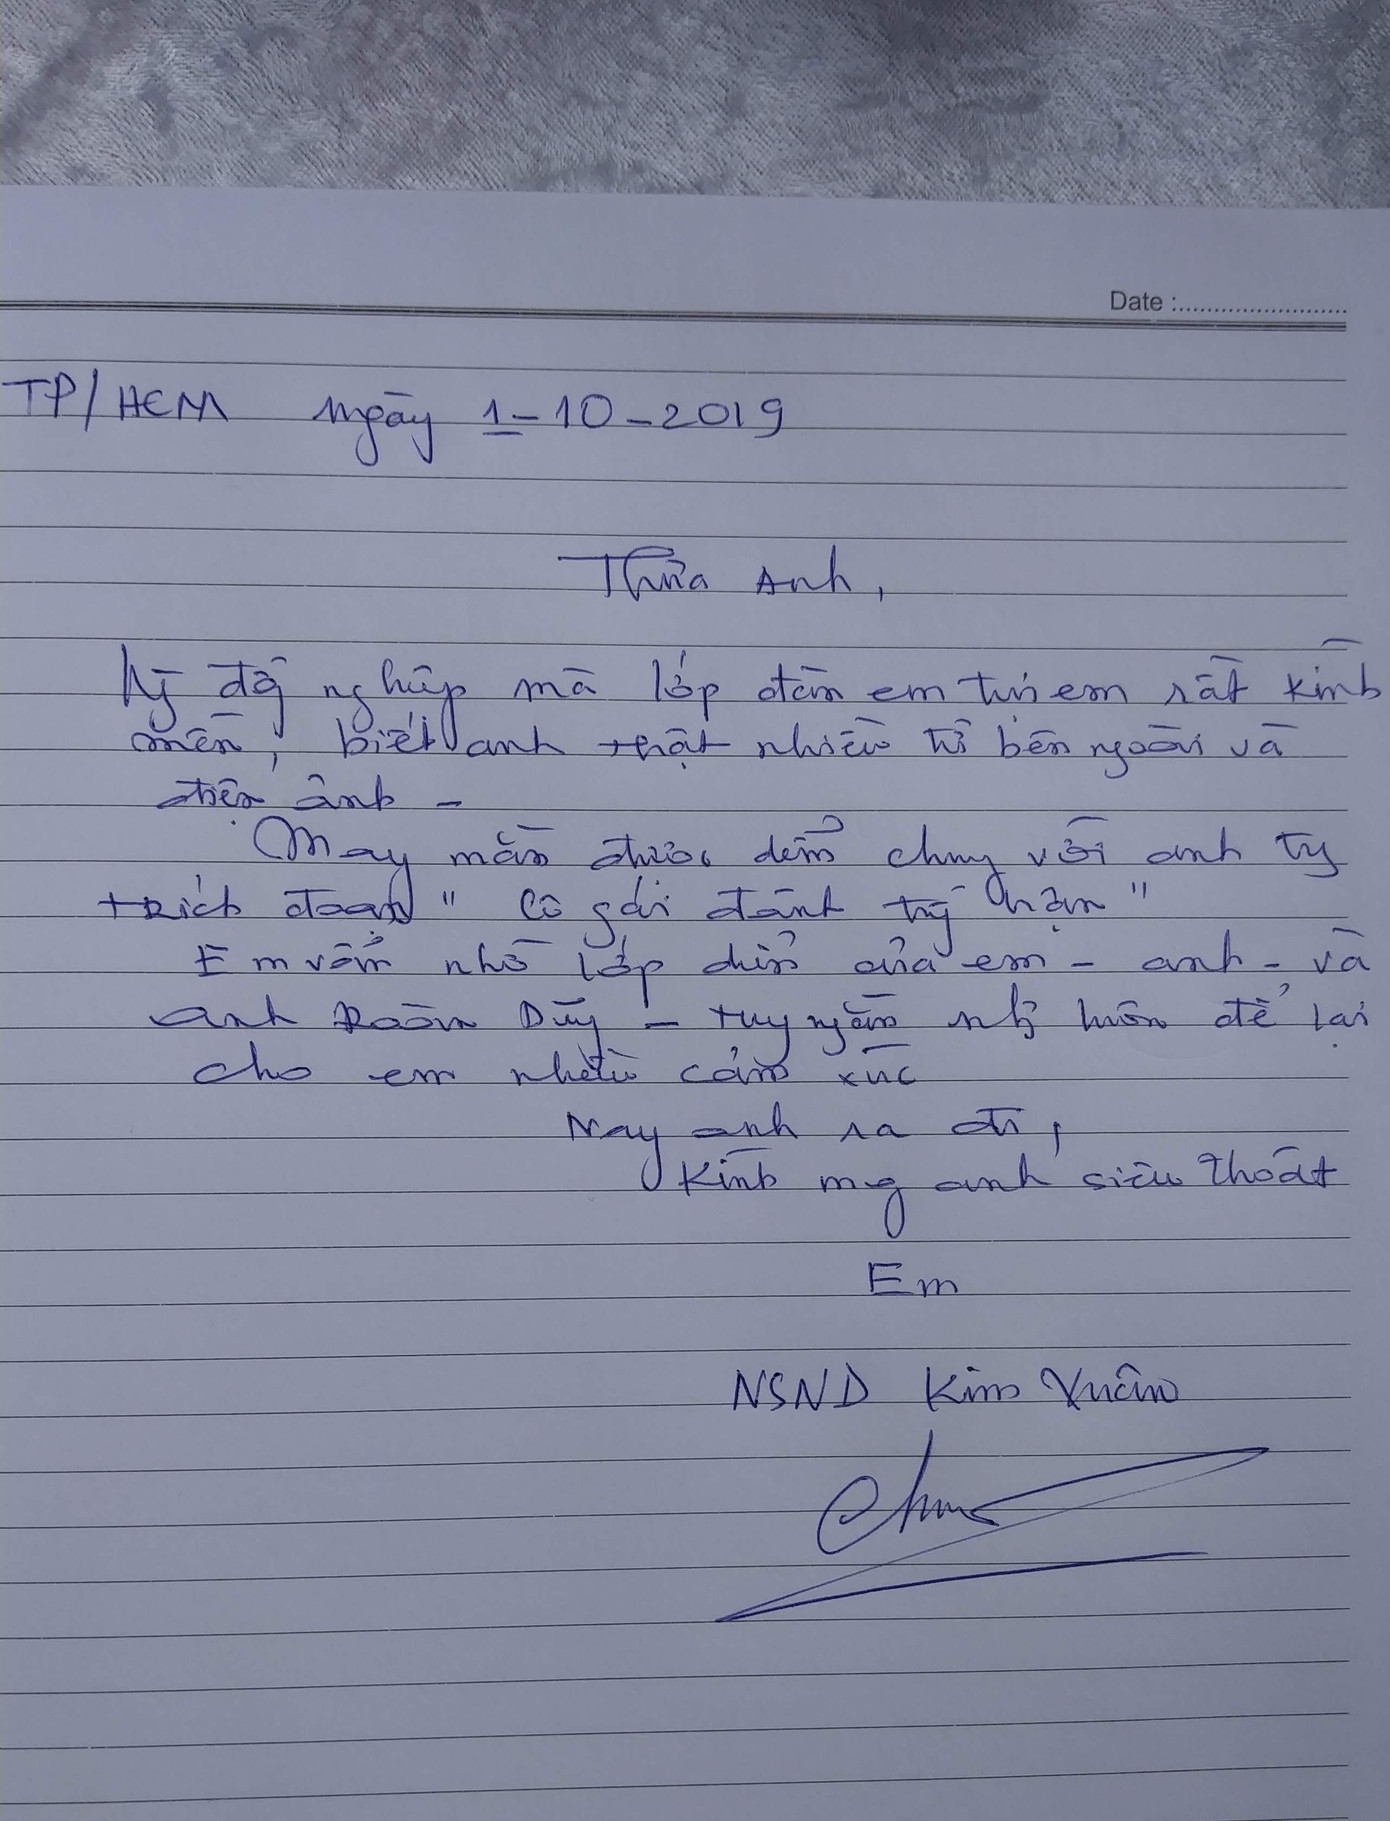 Date :
TP/HCM ngày 1-10-2019
Thưa Anh,
đồng nghiệp mà lớp đàn em tụi em rất kính
mến, biết anh thật nhiều từ bên ngoài và
điện ảnh -
May mắn được diễn chung với anh
trích đoạn " Cô gái đánh trý mặn "
Em vẫn nhớ lớp diễn của em - anh - và
anh Đoàn Dũng - tuy ngắn nhg luôn để lại
cho em nhiều cảm xúc
Nay anh ra đi,
Kính mg anh siêu thoát
Em
NSND Kim Xuân